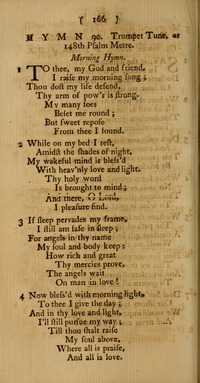 ( 166 )
HYMN 90. Trumpet Tune, or
148th Psalm Metre.
Morning Hymn.
1 TO thee, my God and friend,
I raise my morning song;
Thou dost my life defend,
Thy arm of pow'r is strong.
My many foes
Beset me round;
But sweet repose
From thee I found.
2 While on my bed I rest,
Amidst the shades of night,
My wakeful mind is bless'd
With heav'nly love and light.
Thy holy word
Is brought to mind;
And there, O Lord,
I pleasure find.
3 If sleep pervades my frame,
I still am safe in sleep;
For angels in thy name
My soul and body keep:
How rich and great
Thy mercies prove,
The angels wait
On man in love!
4 Now bless'd with morning light,
To thee I give the day;
And in thy love and light,
I'll still pursue my way;
Till thou shalt raise
My soul above,
Where all is praise,
And all is love.